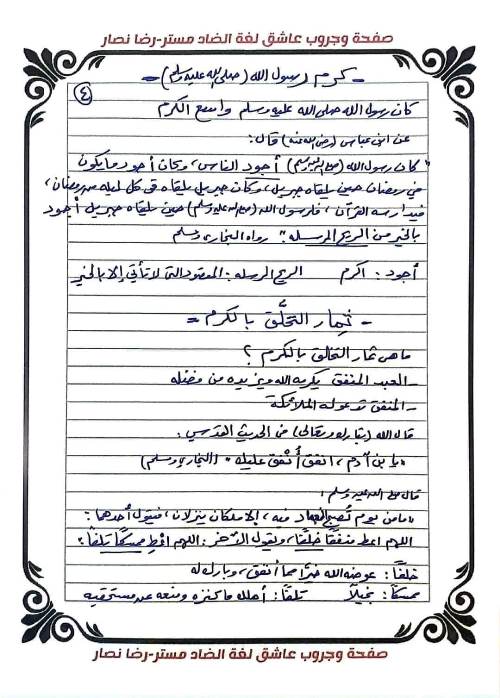 صفحة وجروب عاشق لغة الضاد مستر-رضا نصار
- كرم رسول الله (صلى الله عليه وسلم) -
٤
كان رسول الله صلى الله عليه وسلم واسع الكرم
عن ابن عباس (رضي الله عنه) قال:
"كان رسول الله (صلى الله عليه وسلم) أجود الناس، وكان أجود ما يكون
في رمضان حين يلقاه جبريل، وكان جبريل يلقاه في كل ليلة من رمضان،
فيدارسه القرآن، فلرسول الله (صلى الله عليه وسلم) حين يلقاه جبريل أجود
بالخير من الريح المرسلة" رواه البخاري ومسلم
أجود: أكرم الريح المرسلة: المقصود التي لا تأتي إلا بالخير
- ثِمار التخلَّق بالكرم -
ما هى ثمار التخلق بالكرم ؟
- العبد المنفق يكرمه الله ويزيده من فضله
- المنفق تدعو له الملائكة
قال الله (تبارك وتعالى) في الحديث القدسي:
"يا بن آدم، انفق أُنفق عليك" (البخاري ومسلم)
قال صلى الله عليه وسلم:
"ما من يوم تُصبح العباد فيه، إلا ملكان ينزلان، فيقول أحدهما:
اللهم اعط منفقًا خلفًا، ويقول الآخر: اللهم اعطِ ممسكًا تلفًا"
خلفًا: عوضه الله خيرًا مما أنفق، وبارك له
ممسكًا: بخيلًا تلفًا: أهلك ما كنزه ومنعه عن مستحقيه
صفحة وجروب عاشق لغة الضاد مستر-رضا نصار